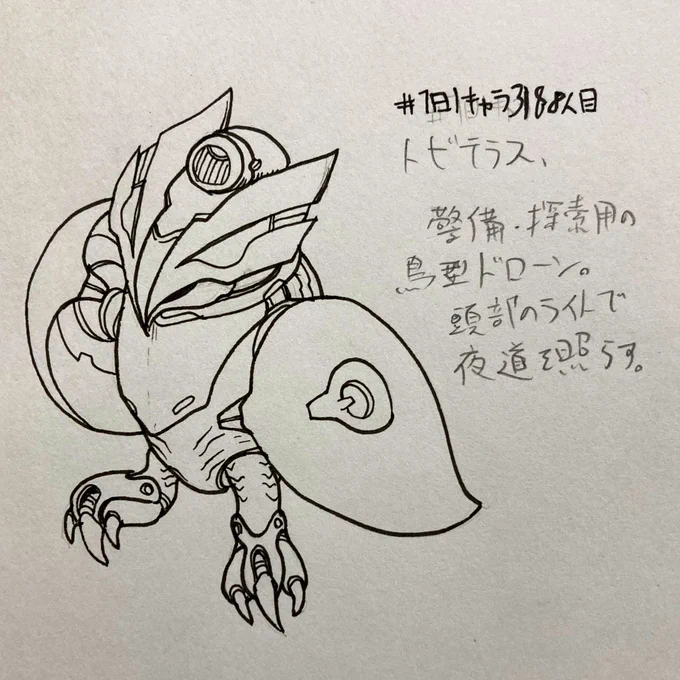 #1日1キャラ3188人目
トビテラス、
警備・探索用の
鳥型ドローン。
頭部のライトで
夜道を照らす。